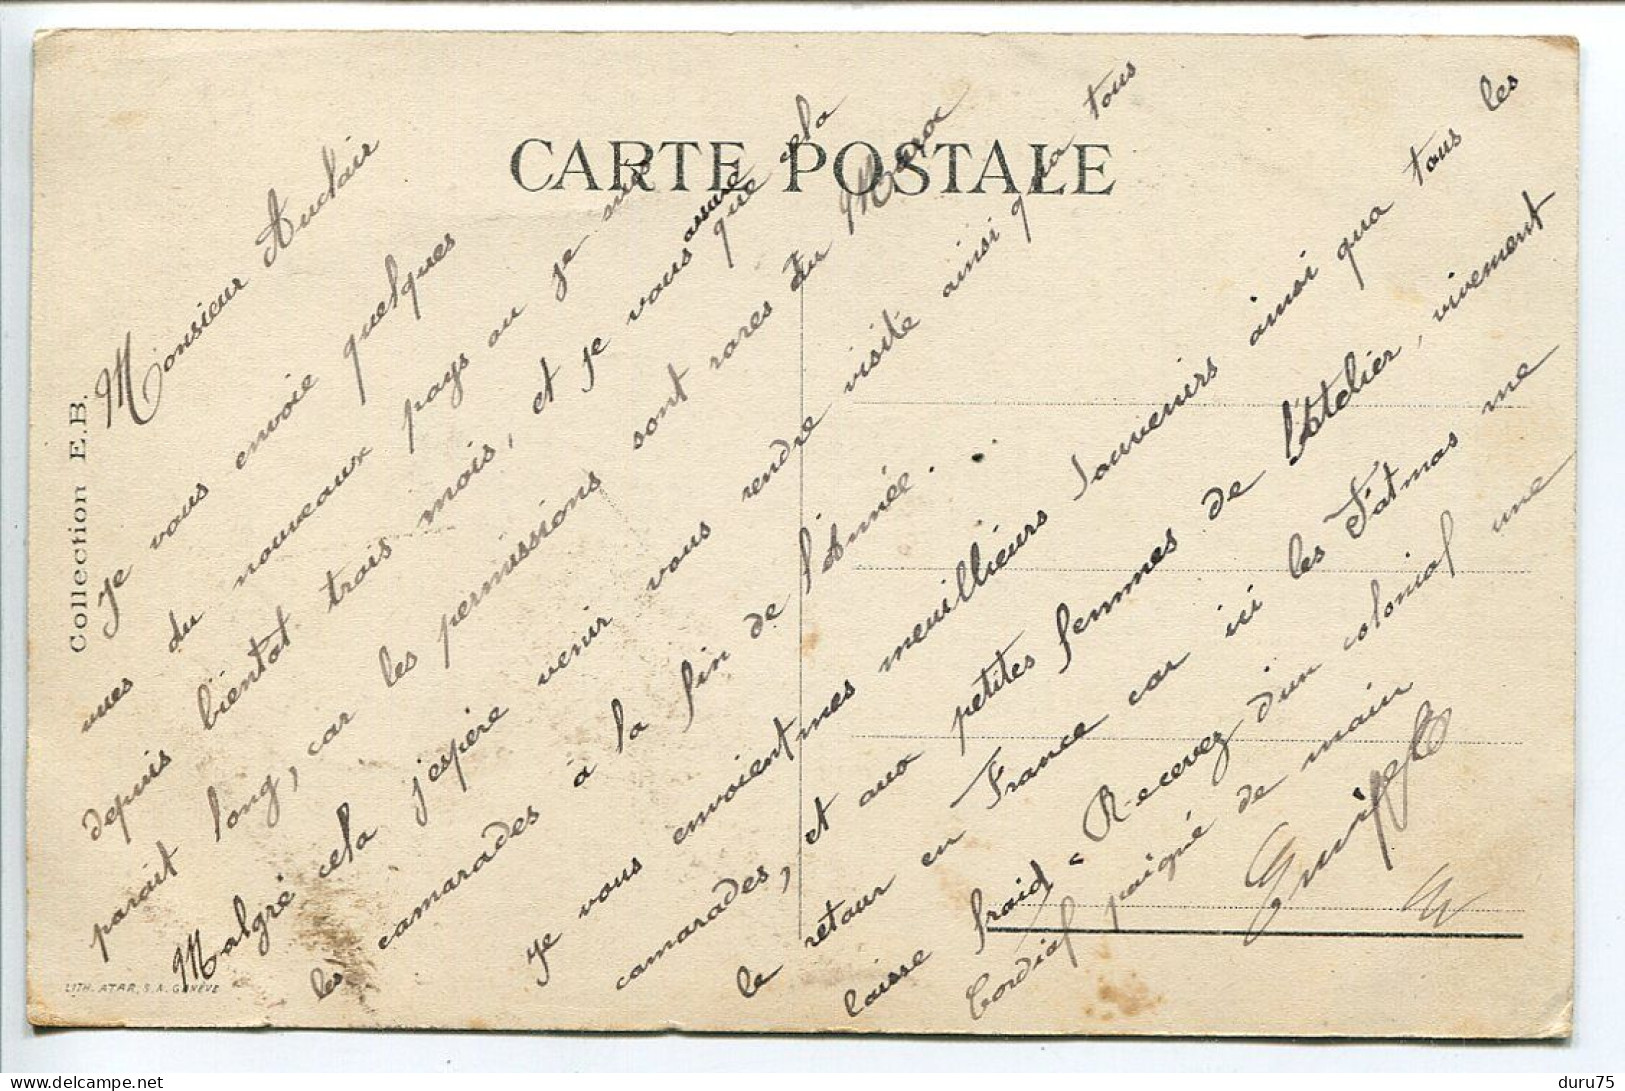 CARTE POSTALE
Collection E.B.
LITH. ATAR, S.A. GENÈVE
Monsieur Auclair
je vous envoie quelques
vues du nouveaux pays ou je suis
depuis bientat trois mois, et je vous assure que cela
parait long, car les permissions sont rares du Maroc
Malgré cela j'espère venir vous rendre visite ainsi qu'a tous
les camarades a la fin de l'Année. . .
je vous envoient mes meuilliéurs souvenirs ainsi qua tous les
camarades, et aux petites femmes de l'Atelier, vivement
le retour en France car ici les Fatmas me
laisse fraid = Recevez d'un colonial une
Cordial paigné de main
delcampe.net
duru75